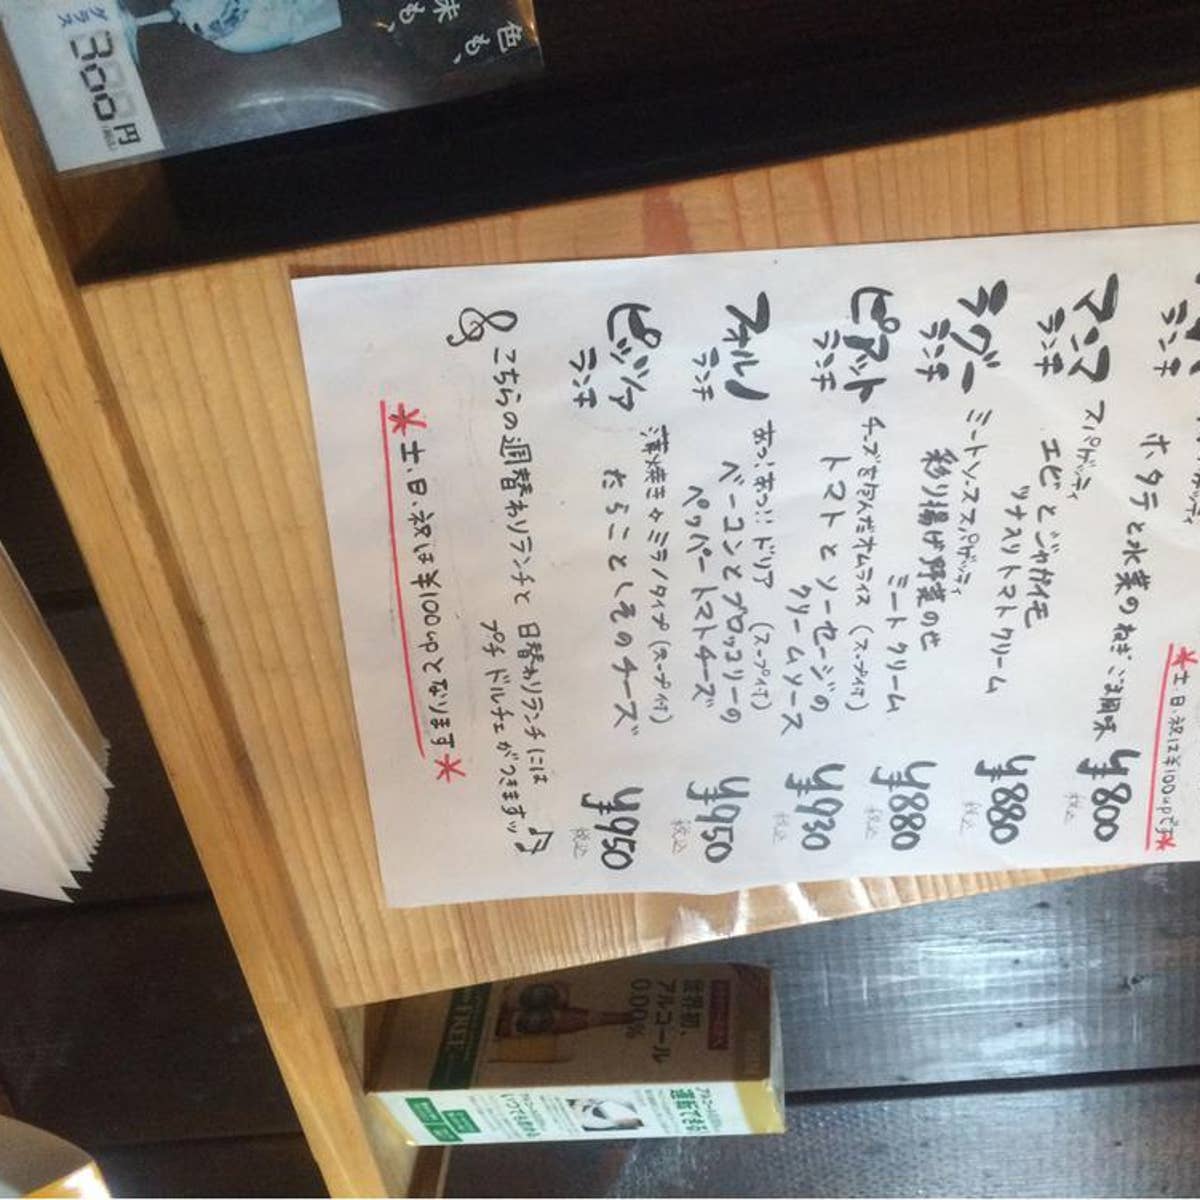 ランチ
ホタテと水菜のねぎごま風味
¥800
税込
*土、日、祝は¥100upです*
マンマ
ランチ
スパゲッティ
エビとジャガイモ
ツナ入りトマトクリーム
¥880
税込
ラグー
ランチ
ミートソーススパゲッティ
彩り揚げ野菜の
ミートクリーム
¥880
税込
ピアット
ランチ
チーズを包んだオムライス (スープ付)
トマトとソーセージの
クリームソース
¥930
税込
フォルノ
ランチ
あつあつ!! ドリア (スープ付)
ベーコンとブロッコリーの
ペッパートマトチーズ
¥950
税込
ピッツァ
ランチ
薄焼き☆ミラノタイプ (スープ付)
たらことしそのチーズ
¥950
税込
こちらの週替わりランチと 日替わりランチには
プチドルチェがつきますッ♪
*土、日、祝は¥100upとなります*
色も、
味も、
グラス
300円
世界初、
アルコール
0.00%
FREE